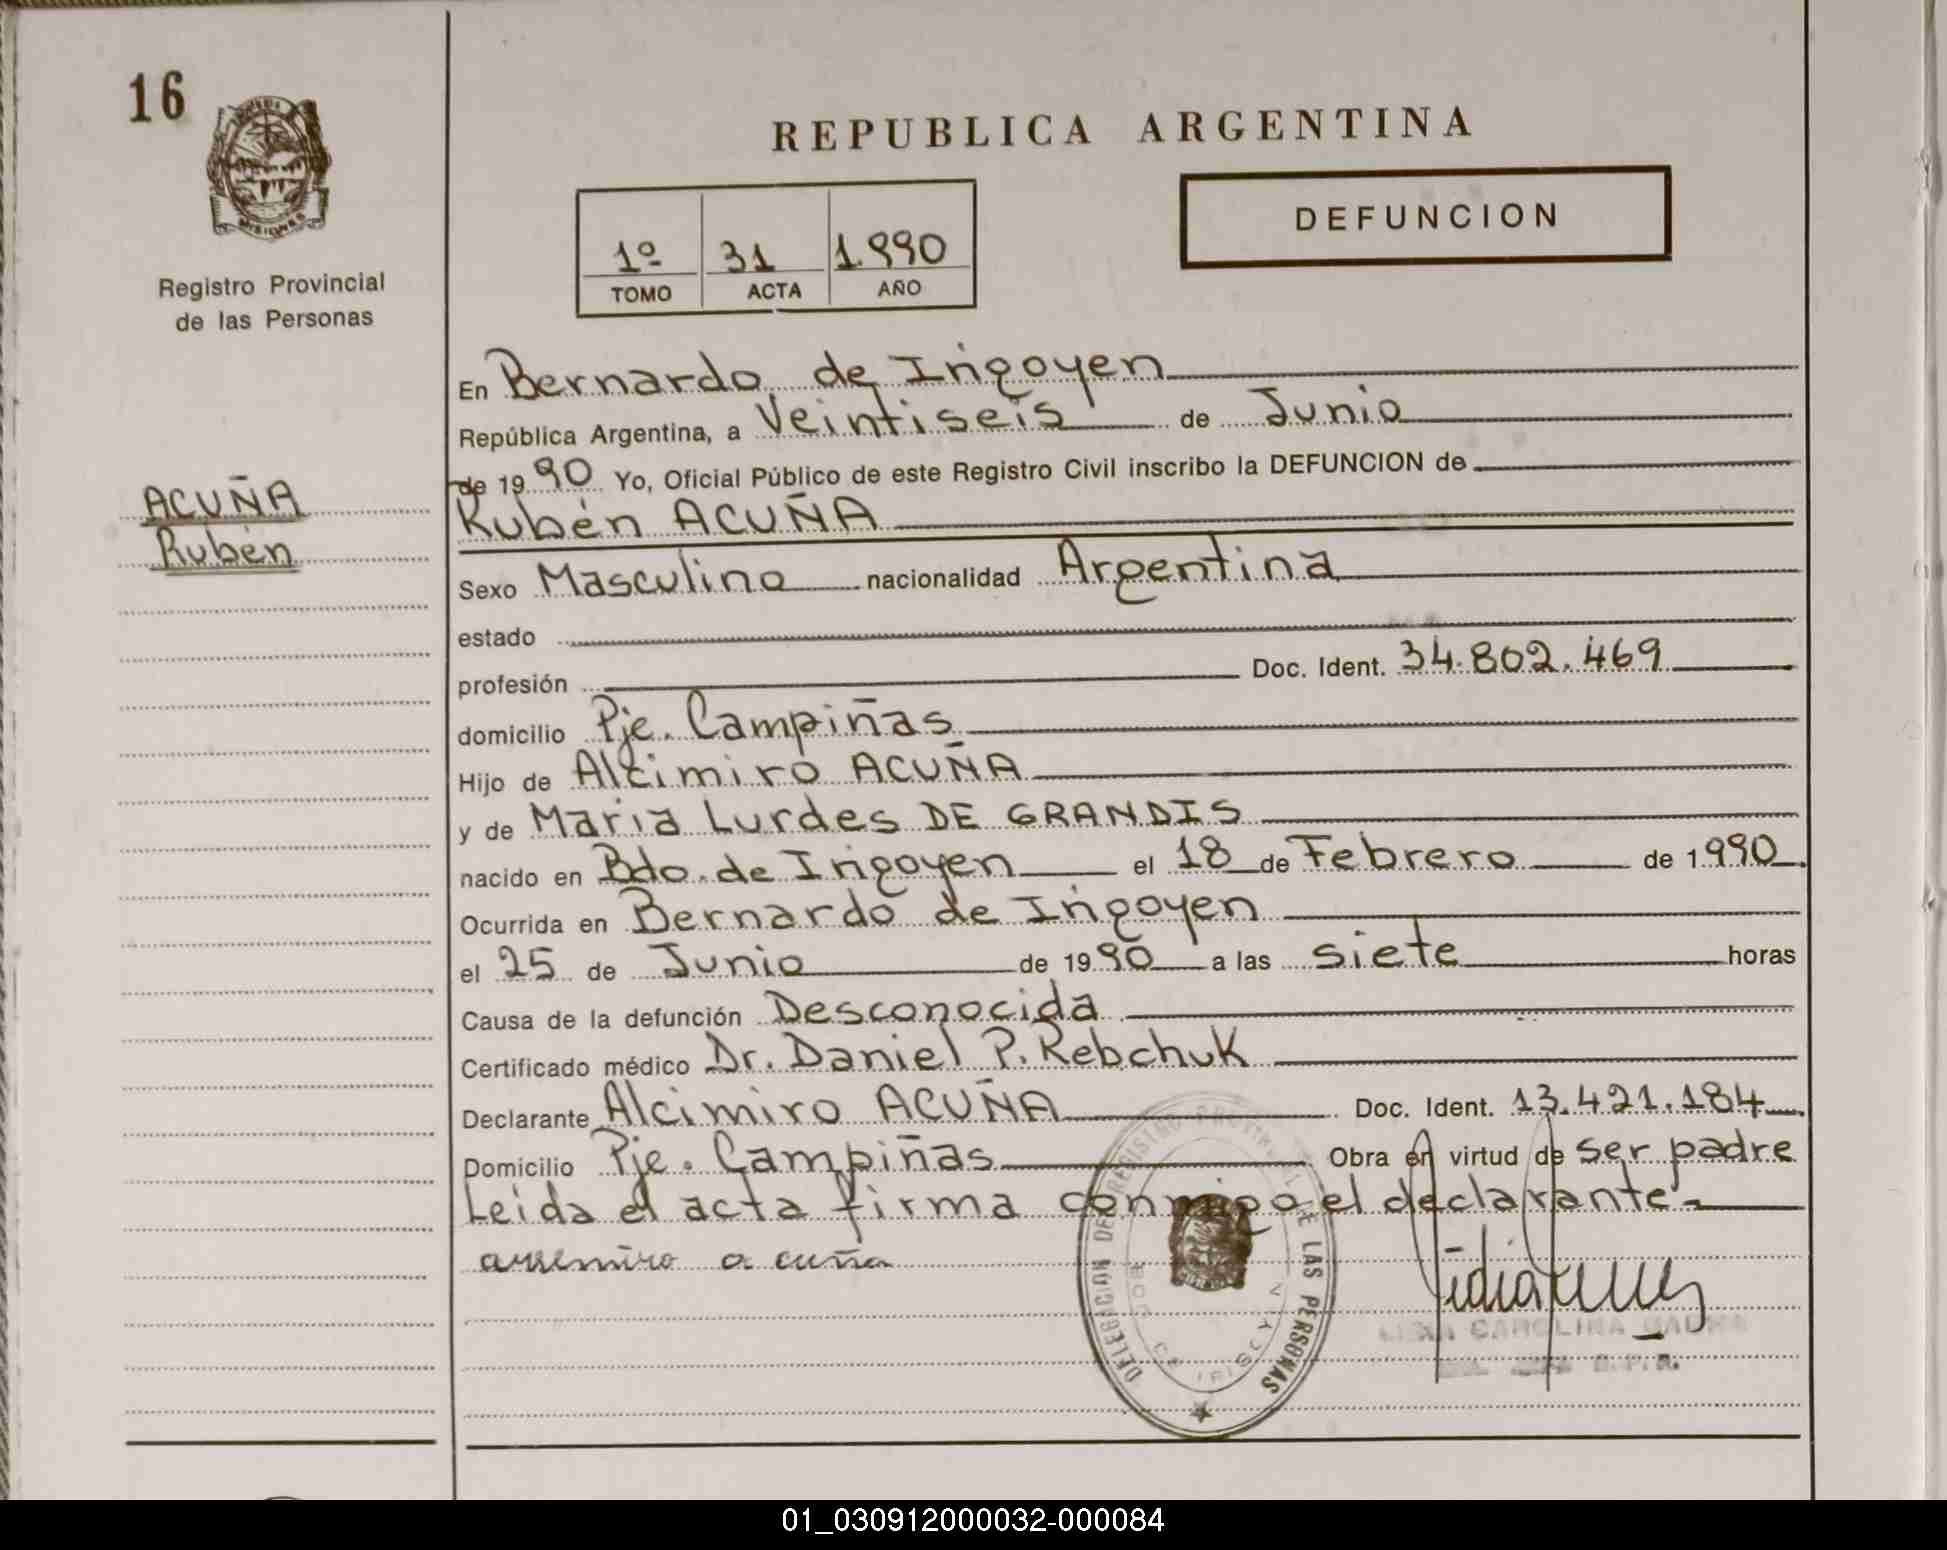 16
MISIONES
Registro Provincial
de las Personas
ACUÑA
Rubén
REPUBLICA ARGENTINA
DEFUNCION
1º 31 1.990
TOMO ACTA AÑO
En Bernardo de Irigoyen
República Argentina, a Veintiseis de Junio
de 1990 Yo, Oficial Público de este Registro Civil inscribo la DEFUNCION de
Rubén ACUÑA
Sexo Masculino nacionalidad Argentina
estado
profesión Doc. Ident. 34.802.469
domicilio Pje. Campiñas
Hijo de Alcimiro ACUÑA
y de Maria Lurdes DE GRANDIS
nacido en Bdo. de Irigoyen el 18 de Febrero de 1.990.
Ocurrida en Bernardo de Irigoyen
el 25 de Junio de 1990 a las siete horas
Causa de la defunción Desconocida
Certificado médico Dr. Daniel P. Rebchuk
Declarante Alcimiro ACUÑA Doc. Ident. 13.421.184
Domicilio Pje. Campiñas Obra en virtud de ser padre
Leida el acta firma conmigo el declarante.-
acuña
DELEGACION DEL REGISTRO PROVINCIAL DE LAS PERSONAS
CAROLINA
01_030912000032-000084